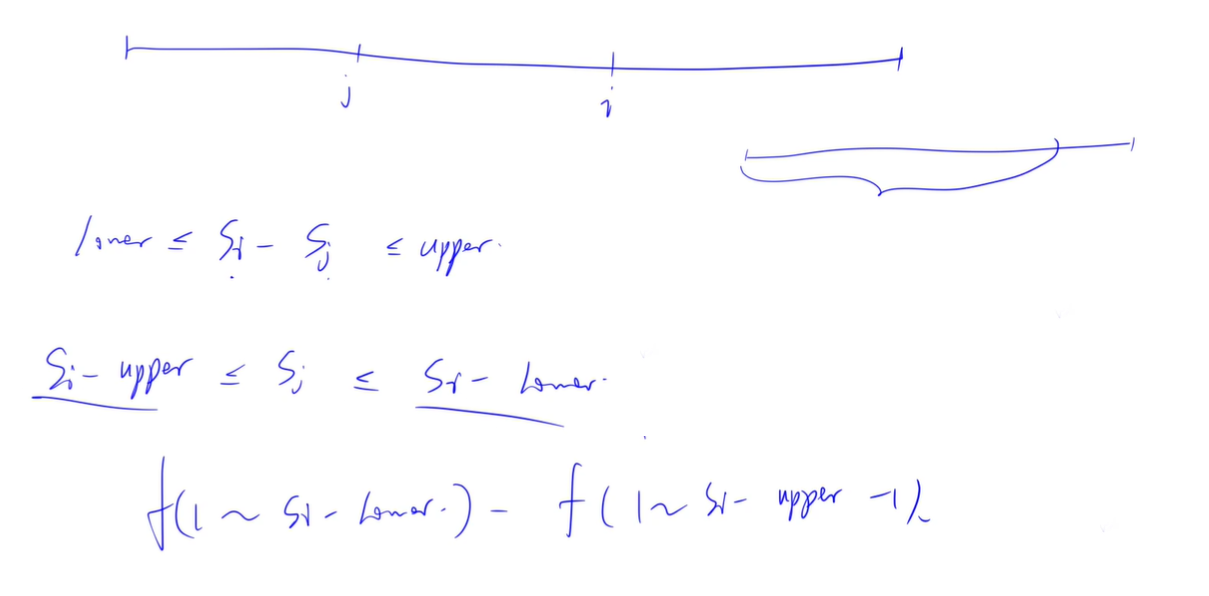 j i
lower ≤ Si - Sj ≤ upper.
Si - upper ≤ Sj ≤ Si - Lower.
f(1 ~ Si - Lower.) - f(1 ~ Si - upper -1).